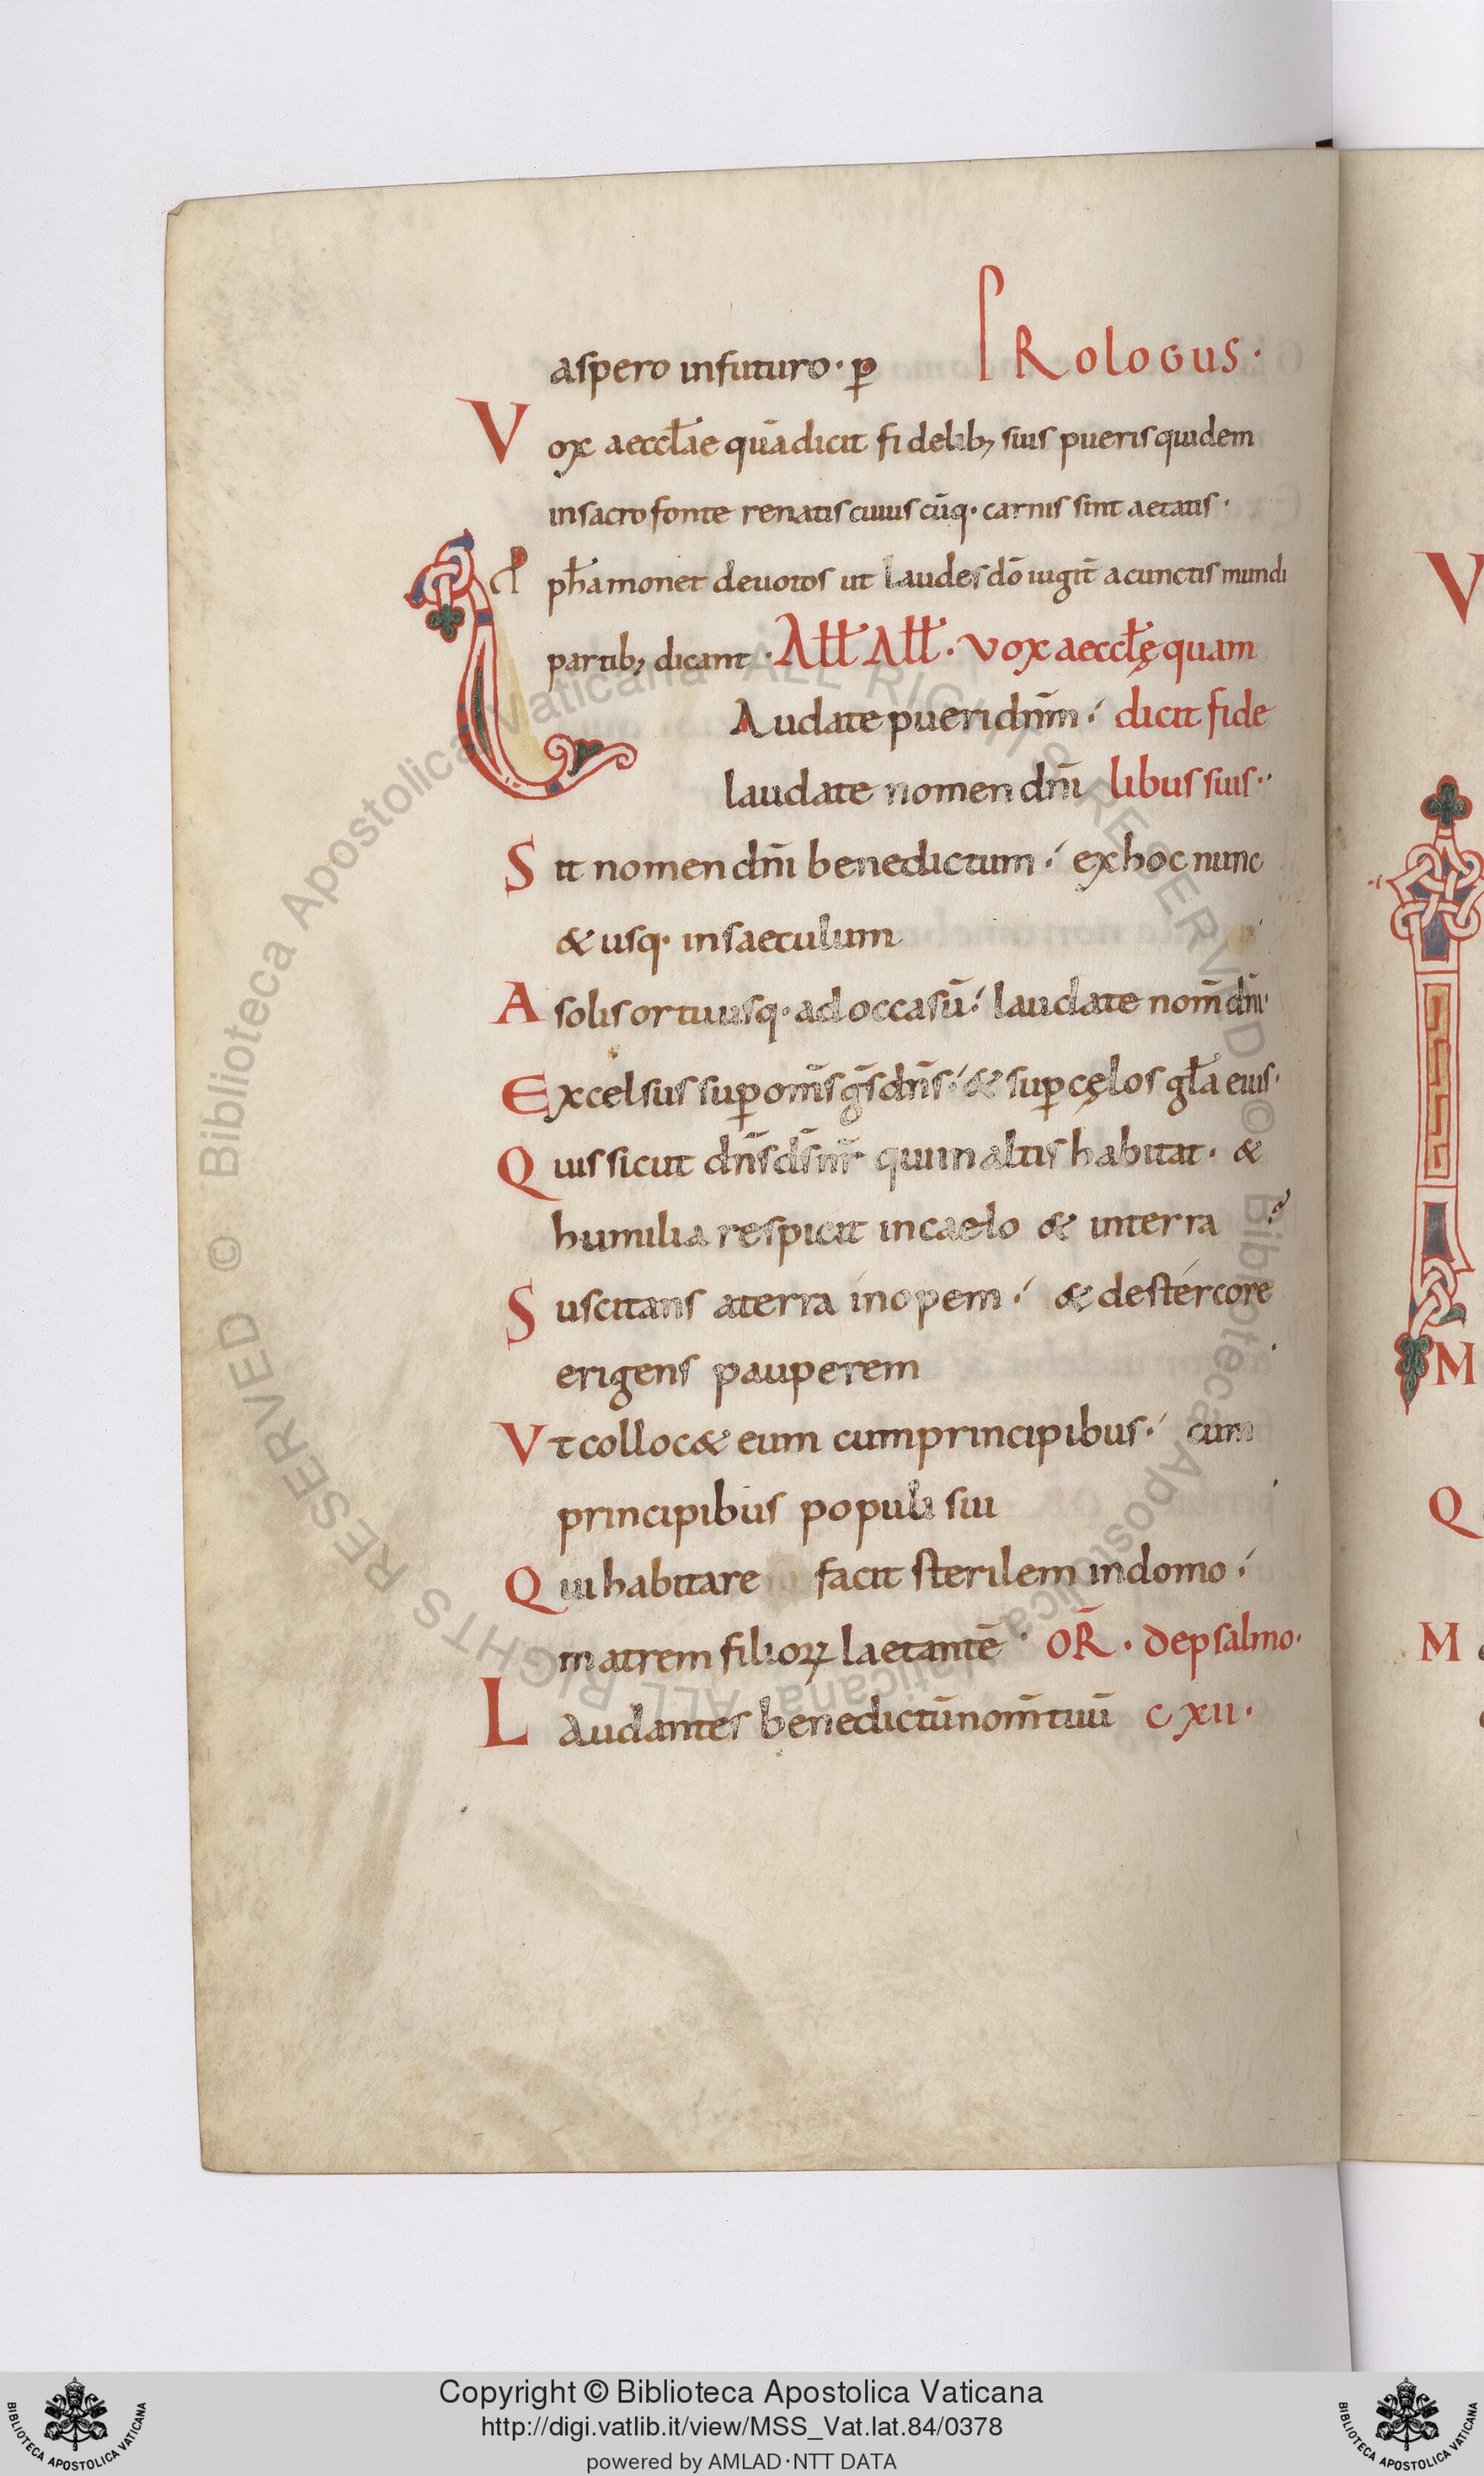 aspero infuturo · p̱ PRologus ·
Vox aeccłae quā dicit fidelib; suis pueris quidem
insacro fonte renatis cuius cūq· carnis sint aetatis ·
ph̄a monet deuotos ut laudes dō iugit̄ a cunctis mundi
partib; dicant · Ałł Ałł · Vox aeccłę quam
LAudate pueri dn̄m : dicit fide
laudate nomen dn̄i libus suis ·
Sit nomen dn̄i benedictum : ex hoc nunc
& usq· insaeculum
A solis ortu usq· ad occasū : laudate nom̄ dn̄i ·
Excelsus sup̱ om̄s ḡs dn̄s : & sup̱ cęlos gła eius ·
Quis sicut dn̄s ds̄ nr̄ qui in altis habitat · &
humilia respicit in caelo & interra
Suscitans aterra inopem : & destercore
erigens pauperem
Vt colloc& eum cum principibus : cum
principibus populi sui
Qui habitare facit sterilem indomo :
matrem filioꝝ laetantē · OR̄ · de psalmo ·
Laudantes benedictū nom̄ tuū cxii ·
© Biblioteca Apostolica Vaticana ALL RIGHTS RESERVED
Copyright © Biblioteca Apostolica Vaticana
http://digi.vatlib.it/view/MSS_Vat.lat.84/0378
powered by AMLAD·NTT DATA
BIBLIOTECA APOSTOLICA VATICANA
BIBLIOTECA APOSTOLICA VATICANA